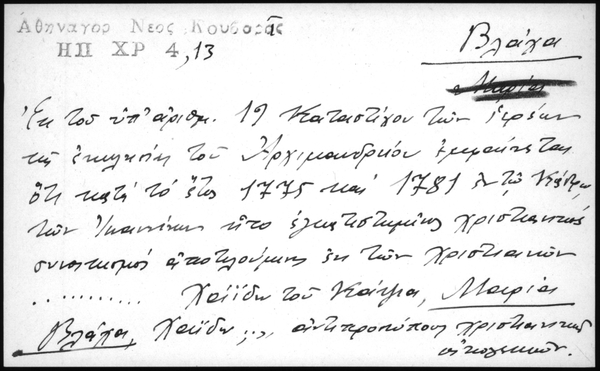 Αθηναγορ Νεος Κουβαρᾶς
ΗΠ ΧΡ 4, 13
Βλάχα
Ἐκ τοῦ ὑπ' ἀριθμ. 19 Καταστίχου τῶν ἱερέων
τῆς ἐκκλησίας τοῦ Ἀρχιμανδρείου ἐμφαίνεται
ὅτι κατά τό ἔτος 1775 καί 1781 ἐν τῷ Κάστρῳ
τῶν Ἰωαννίνων ἦτο ἐγκατεστημένος χριστιανικός
συνοικισμός ἀποτελούμενος ἐκ τῶν χριστιανῶν
............ Χάϊδω τοῦ Κάτμα, Μαρία
Βλάχα, Χάϊδω ..., ἀντιπροσώπους χριστιανικῶν
οἰκογενειῶν.